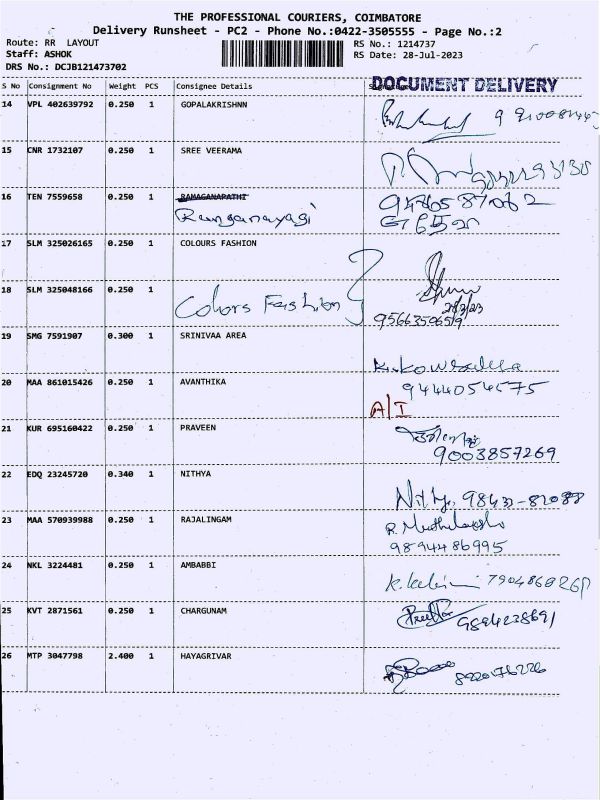 THE PROFESSIONAL COURIERS, COIMBATORE
Delivery Runsheet - PC2 - Phone No.:0422-3505555 - Page No.:2
Route: RR LAYOUT
RS No.: 1214737
Staff: ASHOK
RS Date: 28-Jul-2023
DRS No.: DCJB121473702
DOCUMENT DELIVERY
S No Consignment No Weight PCS Consignee Details
14 VPL 402639792 0.250 1 GOPALAKRISHNN
15 CNR 1732107 0.250 1 SREE VEERAMA
16 TEN 7559658 0.250 1 RAMAGANAPATHI
Ranganayagi
17 SLM 325026165 0.250 1 COLOURS FASHION
18 SLM 325048166 0.250 1
Colors Fashion
9566350659
19 SMG 7591907 0.300 1 SRINIVAA AREA
20 MAA 861015426 0.250 1 AVANTHIKA 9444054575
A/I
21 KUR 695160422 0.250 1 PRAVEEN
9003857269
22 EDQ 23245720 0.340 1 NITHYA
23 MAA 570939988 0.250 1 RAJALINGAM
9894486995
24 NKL 3224481 0.250 1 AMBABBI
25 KVT 2871561 0.250 1 CHARGUNAM
9894238691
26 MTP 3047798 2.400 1 HAYAGRIVAR